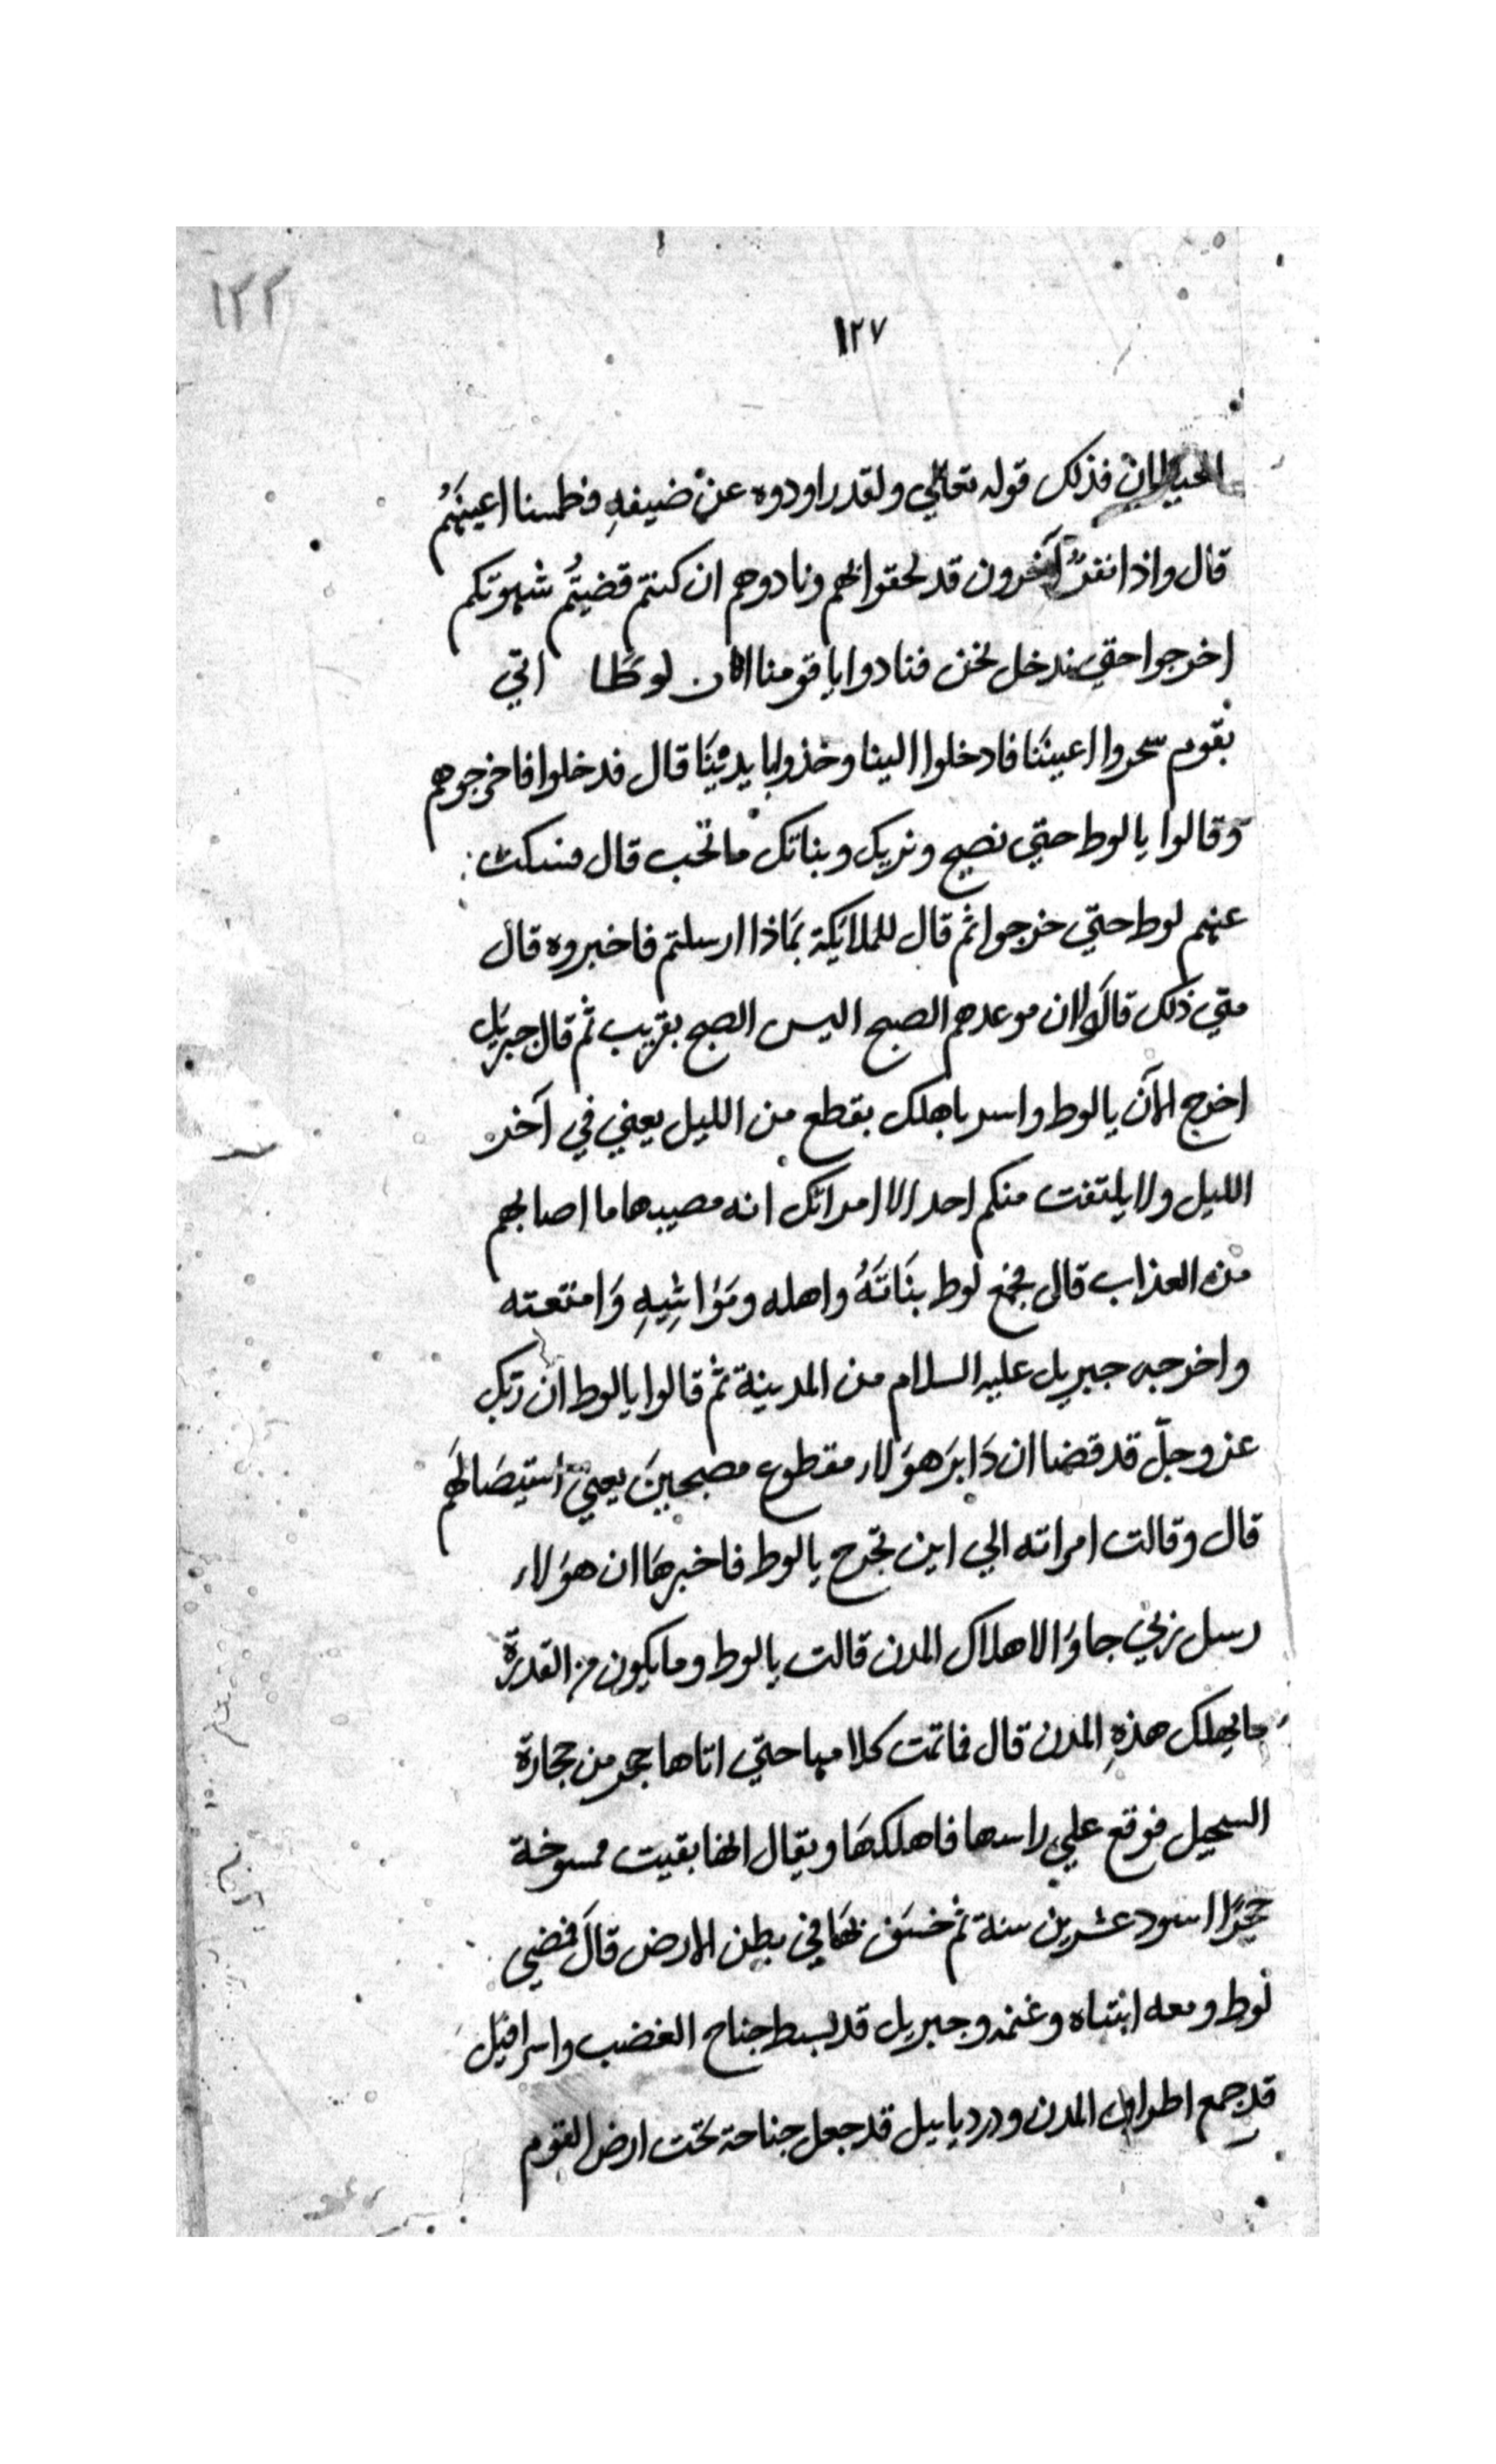 ١٢٢
١٢٧
الحيطان فذلك قوله تعالي ولقد راودوه عن ضيفهِ فطمسنا اعينهُم
قال واذا نفرٌ آخرون قد لحقوا بهم ونادوهم ان كنتم قضيتُم شهوتكم
اخرجوا حتي ندخل نحن فنادوا يا قومنا ان لوطًا اتي
بقوم سحروا اعيننَا فادخلوا الينا وخذوا بايدينَا قال فدخلوا فاخرجوهم
وقالوا يا لوط حتي نصبح ونريك وبناتك ما تحب قال فسكت
عنهم لوط حتي خرجوا ثم قال للملايكة بمَاذا ارسلتم فاخبروه قال
متي ذلك قالَوا ان موعدهم الصبح اليس الصبح بقريب ثم قال جبريل
اخرج الآن يا لوط واسر باهلك بقطع من الليل يعني في آخر
الليل ولا يلتفت منكم احد الا امراتك انه مصيبها ما اصابهم
من العذاب قال فجمع لوط بنَاتَهُ واهله ومَوَاشِيهِ وَامتعته
واخرجه جبريل عليه السلام من المدينة ثم قالوا يا لوط ان ربك
عز وجلّ قد قضا ان دَابرَ هوَلاء مقطوع مصبحينَ يعني استيصَالهَم
قال وقالت امراته الي اين تخرج يا لوط فاخبرهَا ان هوَلاء
رسل ربي جاوَا لاهلاك المدن قالت يا لوط وما يكون من القدرة
ما يهلك هذهِ المدن قال فما تمت كلامها حتي اتاها حجر من حجارة
السجيل فوقع علي راسها فاهلكهَا ويقال انها بقيت ممسوخة
حجرًا اسود عشرين سنة ثم خسَف بهَا في بطن الارض قالَ فمضي
لوط ومعه ابنتاه وغنمه وجبريل قد بسط جناح الغضب واسرافيل
قد جمع اطراف المدن ودرديابيل قد جعل جناحة تحت ارض القوم